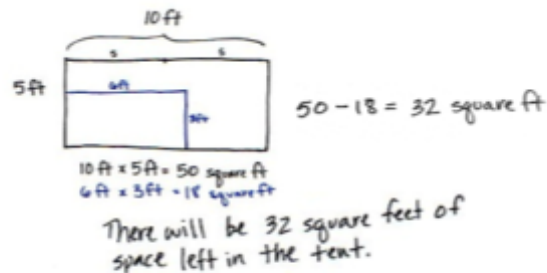 10ft
5 5
5ft
6ft
3ft
50 - 18 = 32 square ft
10 ft x 5 ft = 50 square ft
6 ft x 3 ft = 18 square ft
There will be 32 square feet of
space left in the tent.